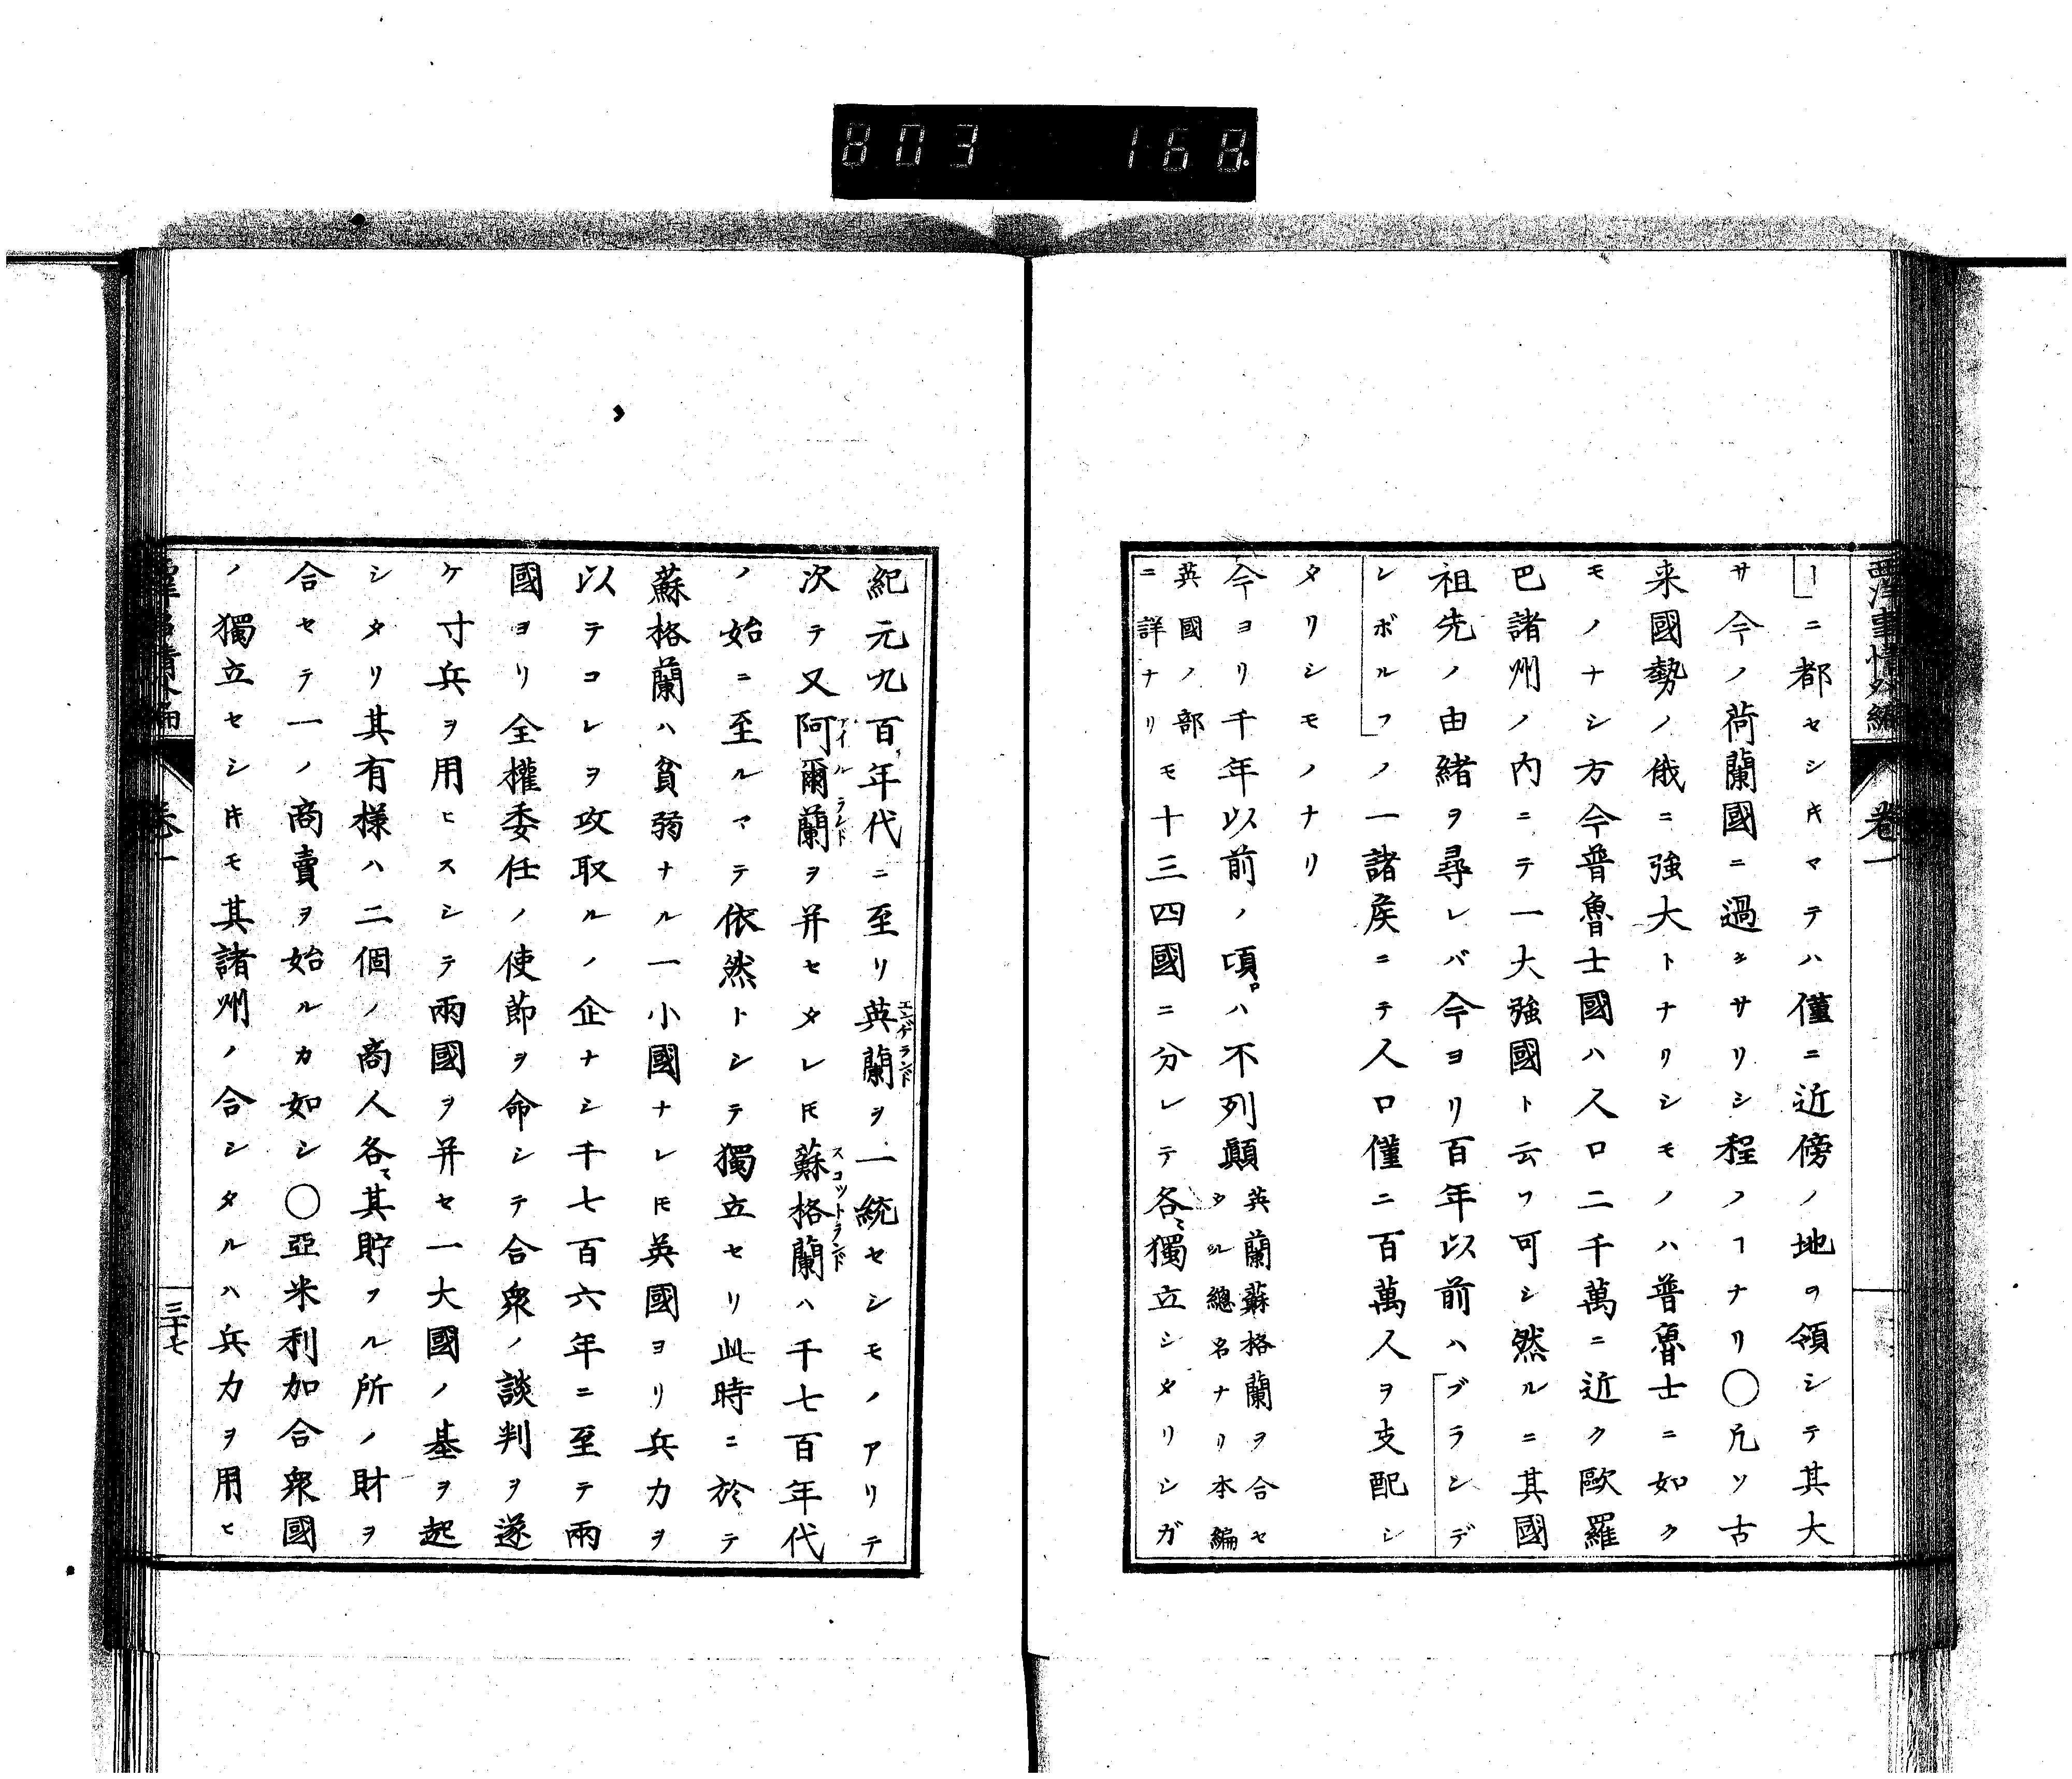 803 168
西洋事情外編 卷一
ー」ニ都セシ𪜈マテハ僅ニ近傍ノ地ヲ領シテ其大
サ今ノ荷蘭國ニ過キサリシ程ノヿナリ〇凡ソ古
来國勢ノ俄ニ強大トナリシモノハ普魯士ニ如ク
モノナシ方今普魯士國ハ人口二千萬ニ近ク歐羅
巴諸州ノ内ニテ一大強國ト云フ可シ然ルニ其國
祖先ノ由緒ヲ尋レバ今ヨリ百年以前ハ「ブランデ
レボルフ」ノ一諸矦ニテ人口僅ニ百萬人ヲ支配シ
タリシモノナリ
今ヨリ千年以前ノ頃ロハ不列顛英蘭蘇格蘭ヲ合セタル總名ナリ本編
英國ノ部ニ詳ナリモ十三四國ニ分レテ各〻獨立シタリシガ
紀元九百年代ニ至リ英蘭ヲ一統セシモノアリテ
エンゲランド
次テ又阿爾蘭ヲ并セタレ𪜈蘇格蘭ハ千七百年代
アイルランド スコットランド
ノ始ニ至ルマテ依然トシテ獨立セリ此時ニ於テ
蘇格蘭ハ貧弱ナル一小國ナレ𪜈英國ヨリ兵力ヲ
以テコレヲ攻取ルノ企ナシ千七百六年ニ至テ兩
國ヨリ全權委任ノ使節ヲ命シテ合衆ノ談判ヲ遂
ケ寸兵ヲ用ヒスシテ兩國ヲ并セ一大國ノ基ヲ起
シタリ其有様ハ二個ノ商人各〻其貯フル所ノ財ヲ
合セテ一ノ商賣ヲ始ルカ如シ〇亞米利加合衆國
ノ獨立セシ𪜈モ其諸州ノ合シタルハ兵力ヲ用ヒ
西洋事情外編 卷一 三十七